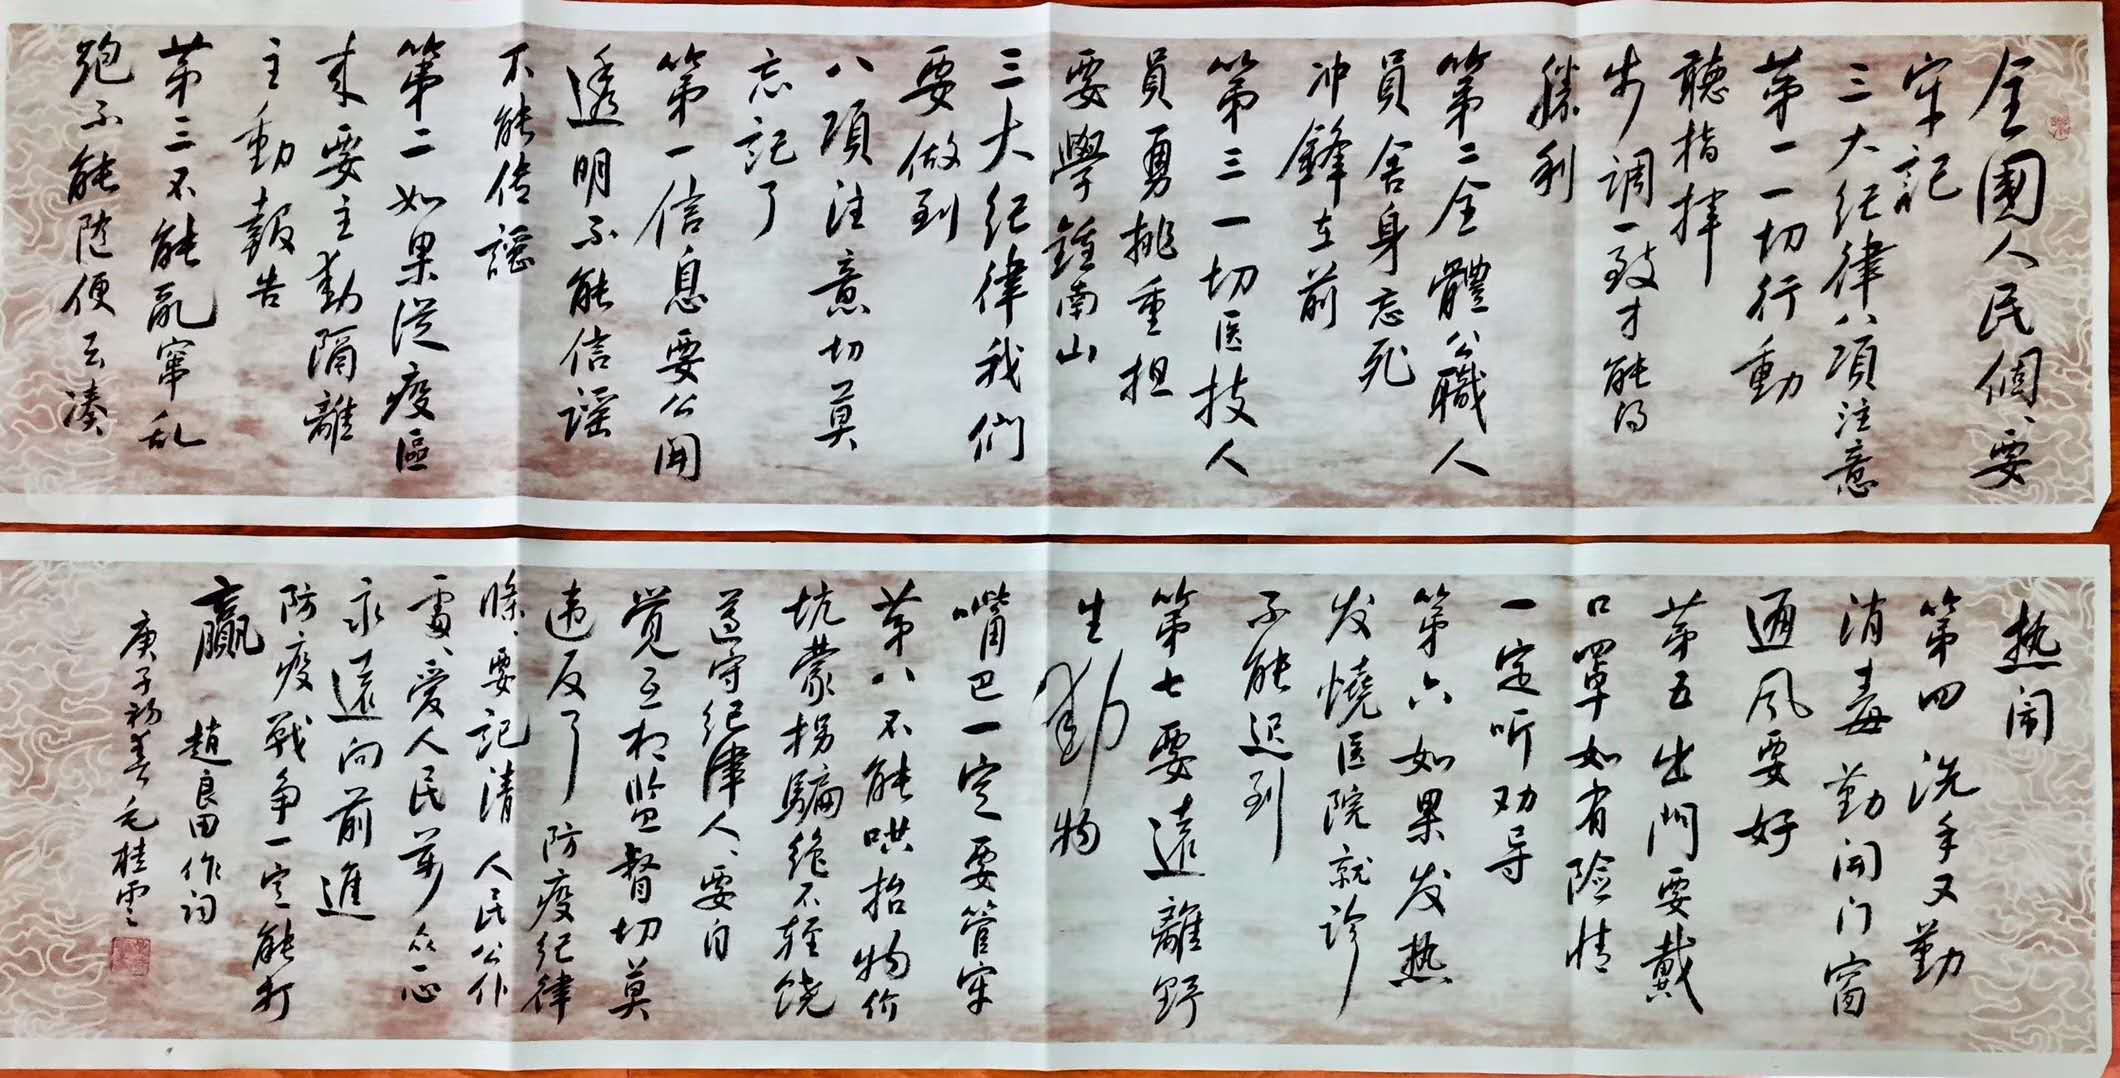 全國人民個、要
牢記
三大纪律八項注意
苐一一切行動
聽指挥
步调一致才能得
勝利
第二全體公職人
員舍身忘死
冲鋒在前
第三一切医技人
員勇挑重担
要學鍾南山
三大纪律我们
要做到
八項注意切莫
忘記了
第一信息要公開
透明不能信谣
不能传谣
第二如果從疫區
来要主動隔離
主動報告
苐三不能亂窜乱
跑不能随便去凑
热闹
第四洗手又勤
消毒勤開门窗
通風要好
苐五出門要戴
口罩如有险情
一定听劝导
第六如果发热
发燒医院就诊
不能迟到
第七要遠離野
生動物
嘴巴一定要管牢
苐八不能哄抬物价
坑蒙拐騙绝不轻饶
遵守纪律人、要自
觉互相监督切莫
违反了防疫纪律
條、要記清人民公仆
處、爱人民萝众心
永遠向前進
防疫戰争一定能打
赢
趙良田作词
庚子初春毛桂雲